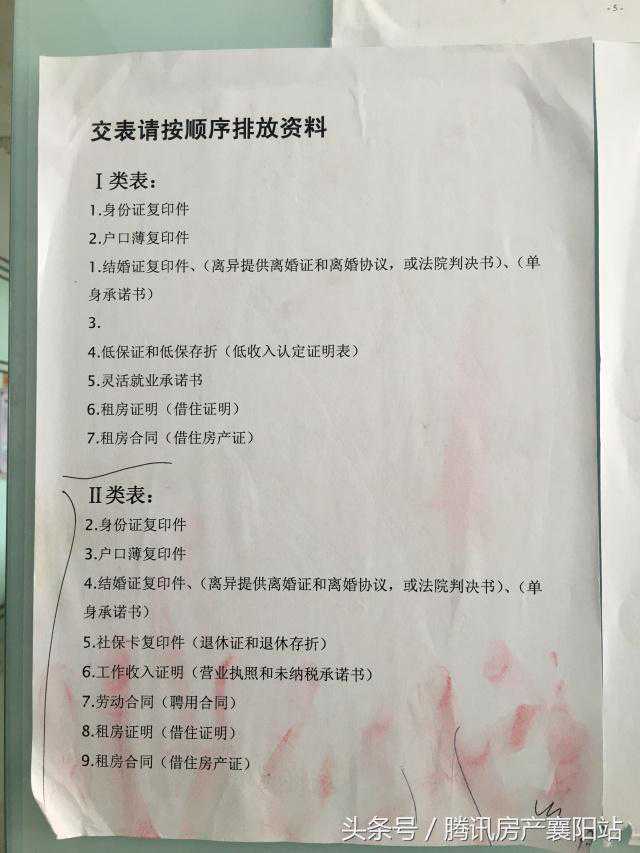 -5-
交表请按顺序排放资料
Ⅰ类表：
1.身份证复印件
2.户口薄复印件
1.结婚证复印件、（离异提供离婚证和离婚协议，或法院判决书）、（单
身承诺书）
3.
4.低保证和低保存折（低收入认定证明表）
5.灵活就业承诺书
6.租房证明（借住证明）
7.租房合同（借住房产证）
Ⅱ类表：
2.身份证复印件
3.户口薄复印件
4.结婚证复印件、（离异提供离婚证和离婚协议，或法院判决书）、（单
身承诺书）
5.社保卡复印件（退休证和退休存折）
6.工作收入证明（营业执照和未纳税承诺书）
7.劳动合同（聘用合同）
8.租房证明（借住证明）
9.租房合同（借住房产证）
头条号／腾讯房产襄阳站